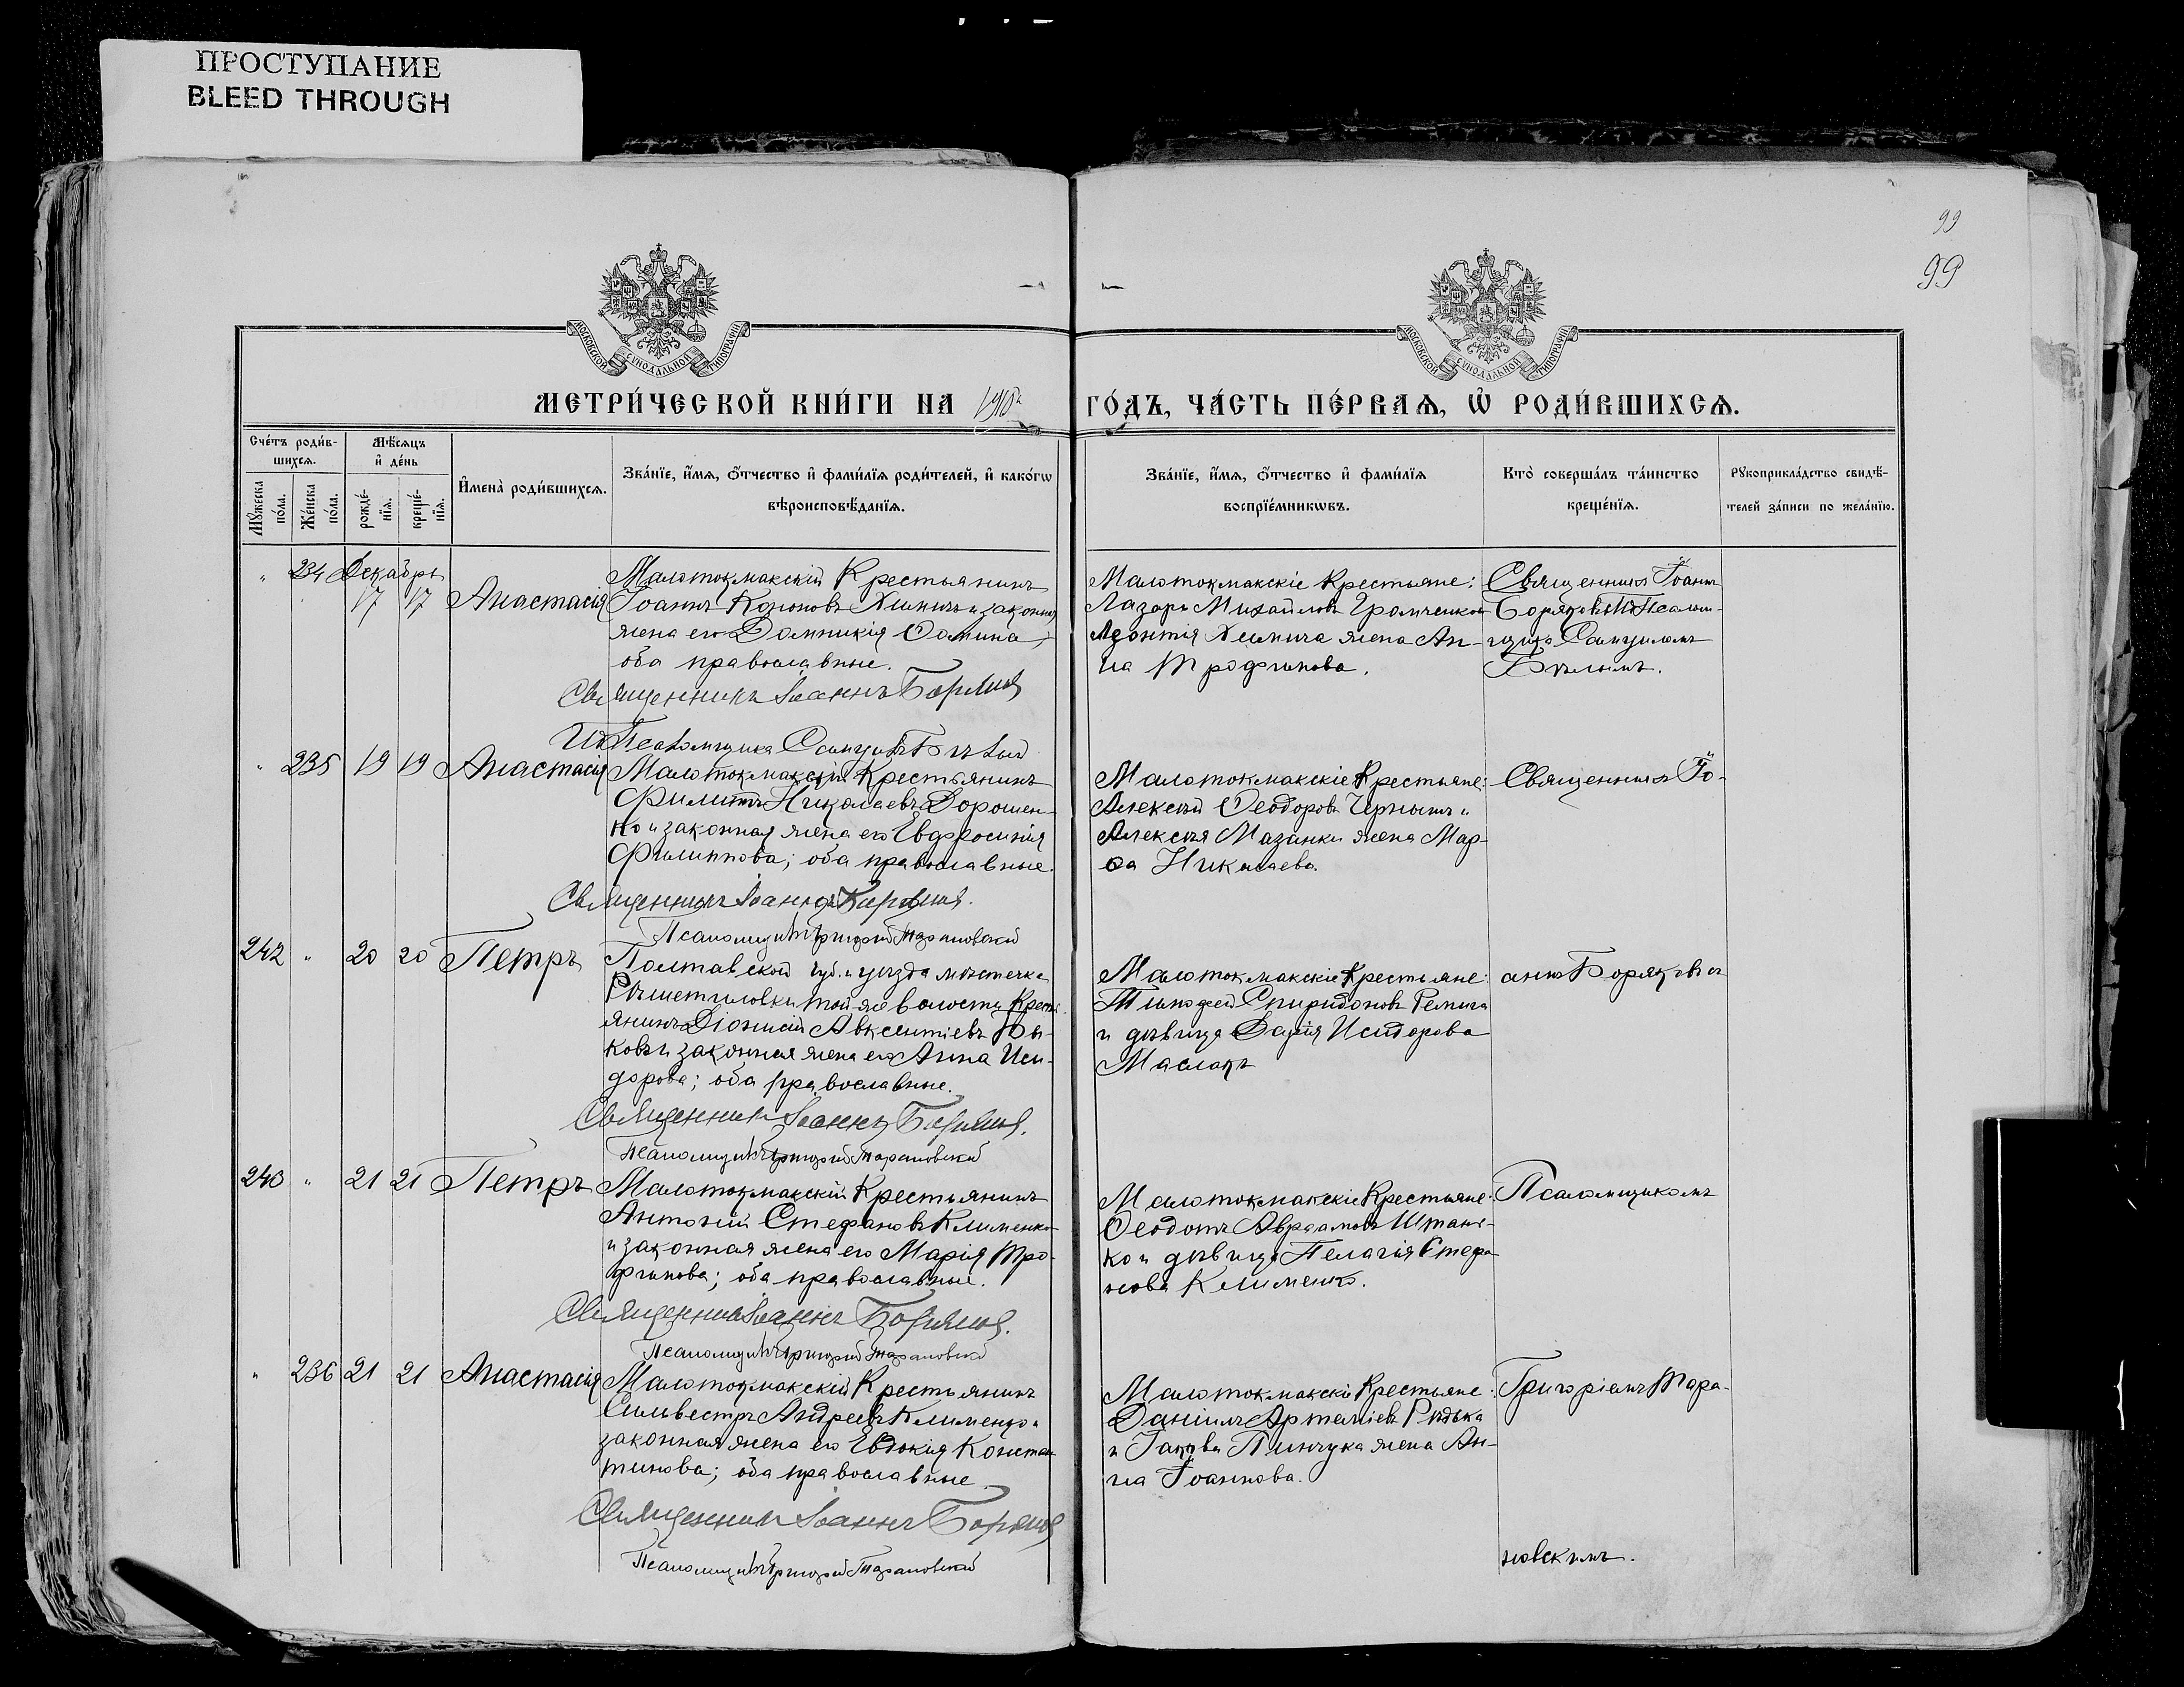 ПРОСТУПАНИЕ
BLEED THROUGH
99
99
МОСКОВСКОЙ СУНОДАЛЬНОЙ ТИПОГРАФІИ
МОСКОВСКОЙ СУНОДАЛЬНОЙ ТИПОГРАФІИ
МЕТРИ́ЧЕСКОЙ КНИ́ГИ НА 1910й ГО́ДЪ, ЧА́СТЬ ПЕ́РВАѦ, Ѡ РОДИ́ВШИХСѦ.
Сче́тъ роди́в-
шихсѧ.
Мꙋ́жеска по́ла.
Же́нска по́ла.
Мѣ́сѧцъ
и҆ де́нь
рожде́-
нїѧ.
креще́-
нїѧ.
И҆мена̀ роди́вшихсѧ.
Зва́нїе, и҆́мѧ, ѻ҆́тчество и҆ фами́лїѧ роди́телей, и҆ како́гѡ
вѣроисповѣ́данїѧ.
Зва́нїе, и҆́мѧ, ѻ҆́тчество и҆ фами́лїѧ
воспрїе́мникѡвъ.
Кто̀ соверша́лъ та́инство
креще́нїѧ.
Рꙋкоприкла́дство свидѣ́-
телей за́писи по жела́нїю.
" 234 Декабрь
17 17 Анастасія
Малотокмакскій Крестьянинъ
Іоаннъ Кононовъ Химичъ и законная
жена его Домникія Ѳомина,
оба православные.
Священникъ Іоаннъ Боряковъ
ИдПсаломщика Самуилъ Бѣлый
Малотокмакскіе Крестьяне:
Лазарь Михайловъ Громченко и
Леонтія Химича жена Ан-
на Трофимова.
Священникъ Іоаннъ
Боряковъ ИдПсалом-
щика Самуиломъ
Бѣлымъ.
" 235 19 19 Анастасія
Малотокмакскій Крестьянинъ
Филиппъ Николаевъ Дорошен-
ко и законная жена его Евфросинія
Филиппова; оба православные.
Священникъ Іоаннъ Боряковъ.
Псаломщикъ Григорій Тарановскій
Малотокмакскіе Крестьяне:
Алексѣй Ѳеодоровъ Чернышъ и
Алексѣя Мазанки жена Мар-
ѳа Николаева.
Священникъ Іо-
242 " 20 20 Петръ
Полтавской губ. и уѣзда мѣстечка
Рѣшетиловки той-же волости Кресть-
янинъ Діонисій Авксентіевъ
ковъ и законная жена его Анна Иси-
дорова; оба православные.
Священникъ Іоаннъ Боряковъ.
Псаломщикъ Григорій Тарановскій
Малотокмакскіе Крестьяне:
Тимофей Спиридоновъ Ремига
и дѣвица Дарія Исидорова
Маслакъ
аннъ Боряковъ съ
243 " 21 21 Петръ
Малотокмакскій Крестьянинъ
Антоній Стефановъ Клименко
и законная жена его Марія Тро-
фимова; оба православные.
Священникъ Іоаннъ Боряковъ.
Псаломщикъ Григорій Тарановскій
Малотокмакскіе Крестьяне:
Ѳеодотъ Авраамовъ Штань-
ко и дѣвица Пелагія Стефа-
нова Клименко.
Псаломщикомъ
" 236 21 21 Анастасія
Малотокмакскій Крестьянинъ
Сильвестръ Андреевъ Клименко и
законная жена его Евдокія Констан-
тинова; оба православные.
Священникъ Іоаннъ Боряковъ
Псаломщикъ Григорій Тарановскій
Малотокмакскіе Крестьяне:
Даніилъ Артеміевъ Рѣдька
и Іакова Пинчука жена Ан-
на Іоаннова.
Григоріемъ Тара-
новскимъ.